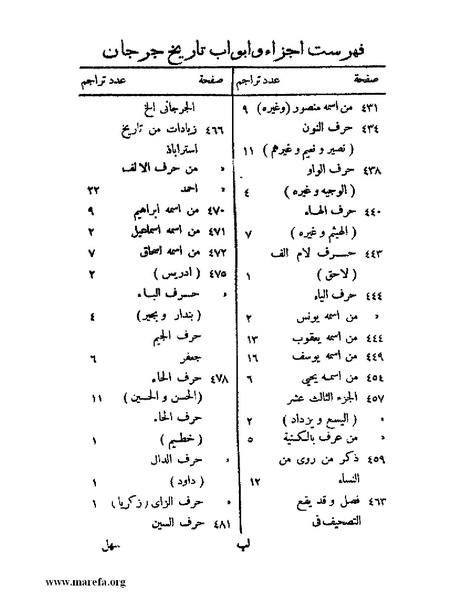 فهرست اجزاء و ابواب تاريخ جرجان
صفحة عدد تراجم
٤٣١ من اسمه منصور (وغيره) ٩
٤٣٤ حرف النون
( نصير و نعيم و غيرهم ) ١١
٤٣٨ حرف الواو
( الوجيه و غيره ) ٤
٤٤٠ حرف الهاء
( الهيثم و غيره ) ٧
٤٤٣ حرف لام الف
( لاحق ) ١
٤٤٤ حرف الياء
» من اسمه يونس ٢
٤٤٤ من اسمه يعقوب ١٣
٤٤٩ من اسمه يوسف ١٦
٤٥٤ من اسمه يحيى ٦
٤٥٧ الجزء الثالث عشر
( اليسع و يزداد ) ٢
» من عرف بالكنية ٥
٤٥٩ ذكر من روى من
النساء ١٢
٤٦٣ فصل و قد يقع
التصحيف فى
صفحة عدد تراجم
الجرجانى الخ
٤٦٦ زيادات من تاريخ
استراباذ
» من حرف الالف
» احمد ٢٢
٤٧٠ من اسمه ابراهيم ٩
٤٧١ من اسمه اسماعيل ٢
٤٧٢ من اسمه اسحاق ٧
٤٧٥ ( ادريس ) ٢
» حرف الباء
( بندار و بجير ) ٤
حرف الجيم
جعفر ٦
٤٧٨ حرف الحاء
( الحسن و الحسين ) ١١
حرف الخاء
» ( خطيم ) ١
» حرف الدال
( داود ) ١
» حرف الزاى ( زكريا ) ١
٤٨١ حرف السين
لب
سهل
www.marefa.org